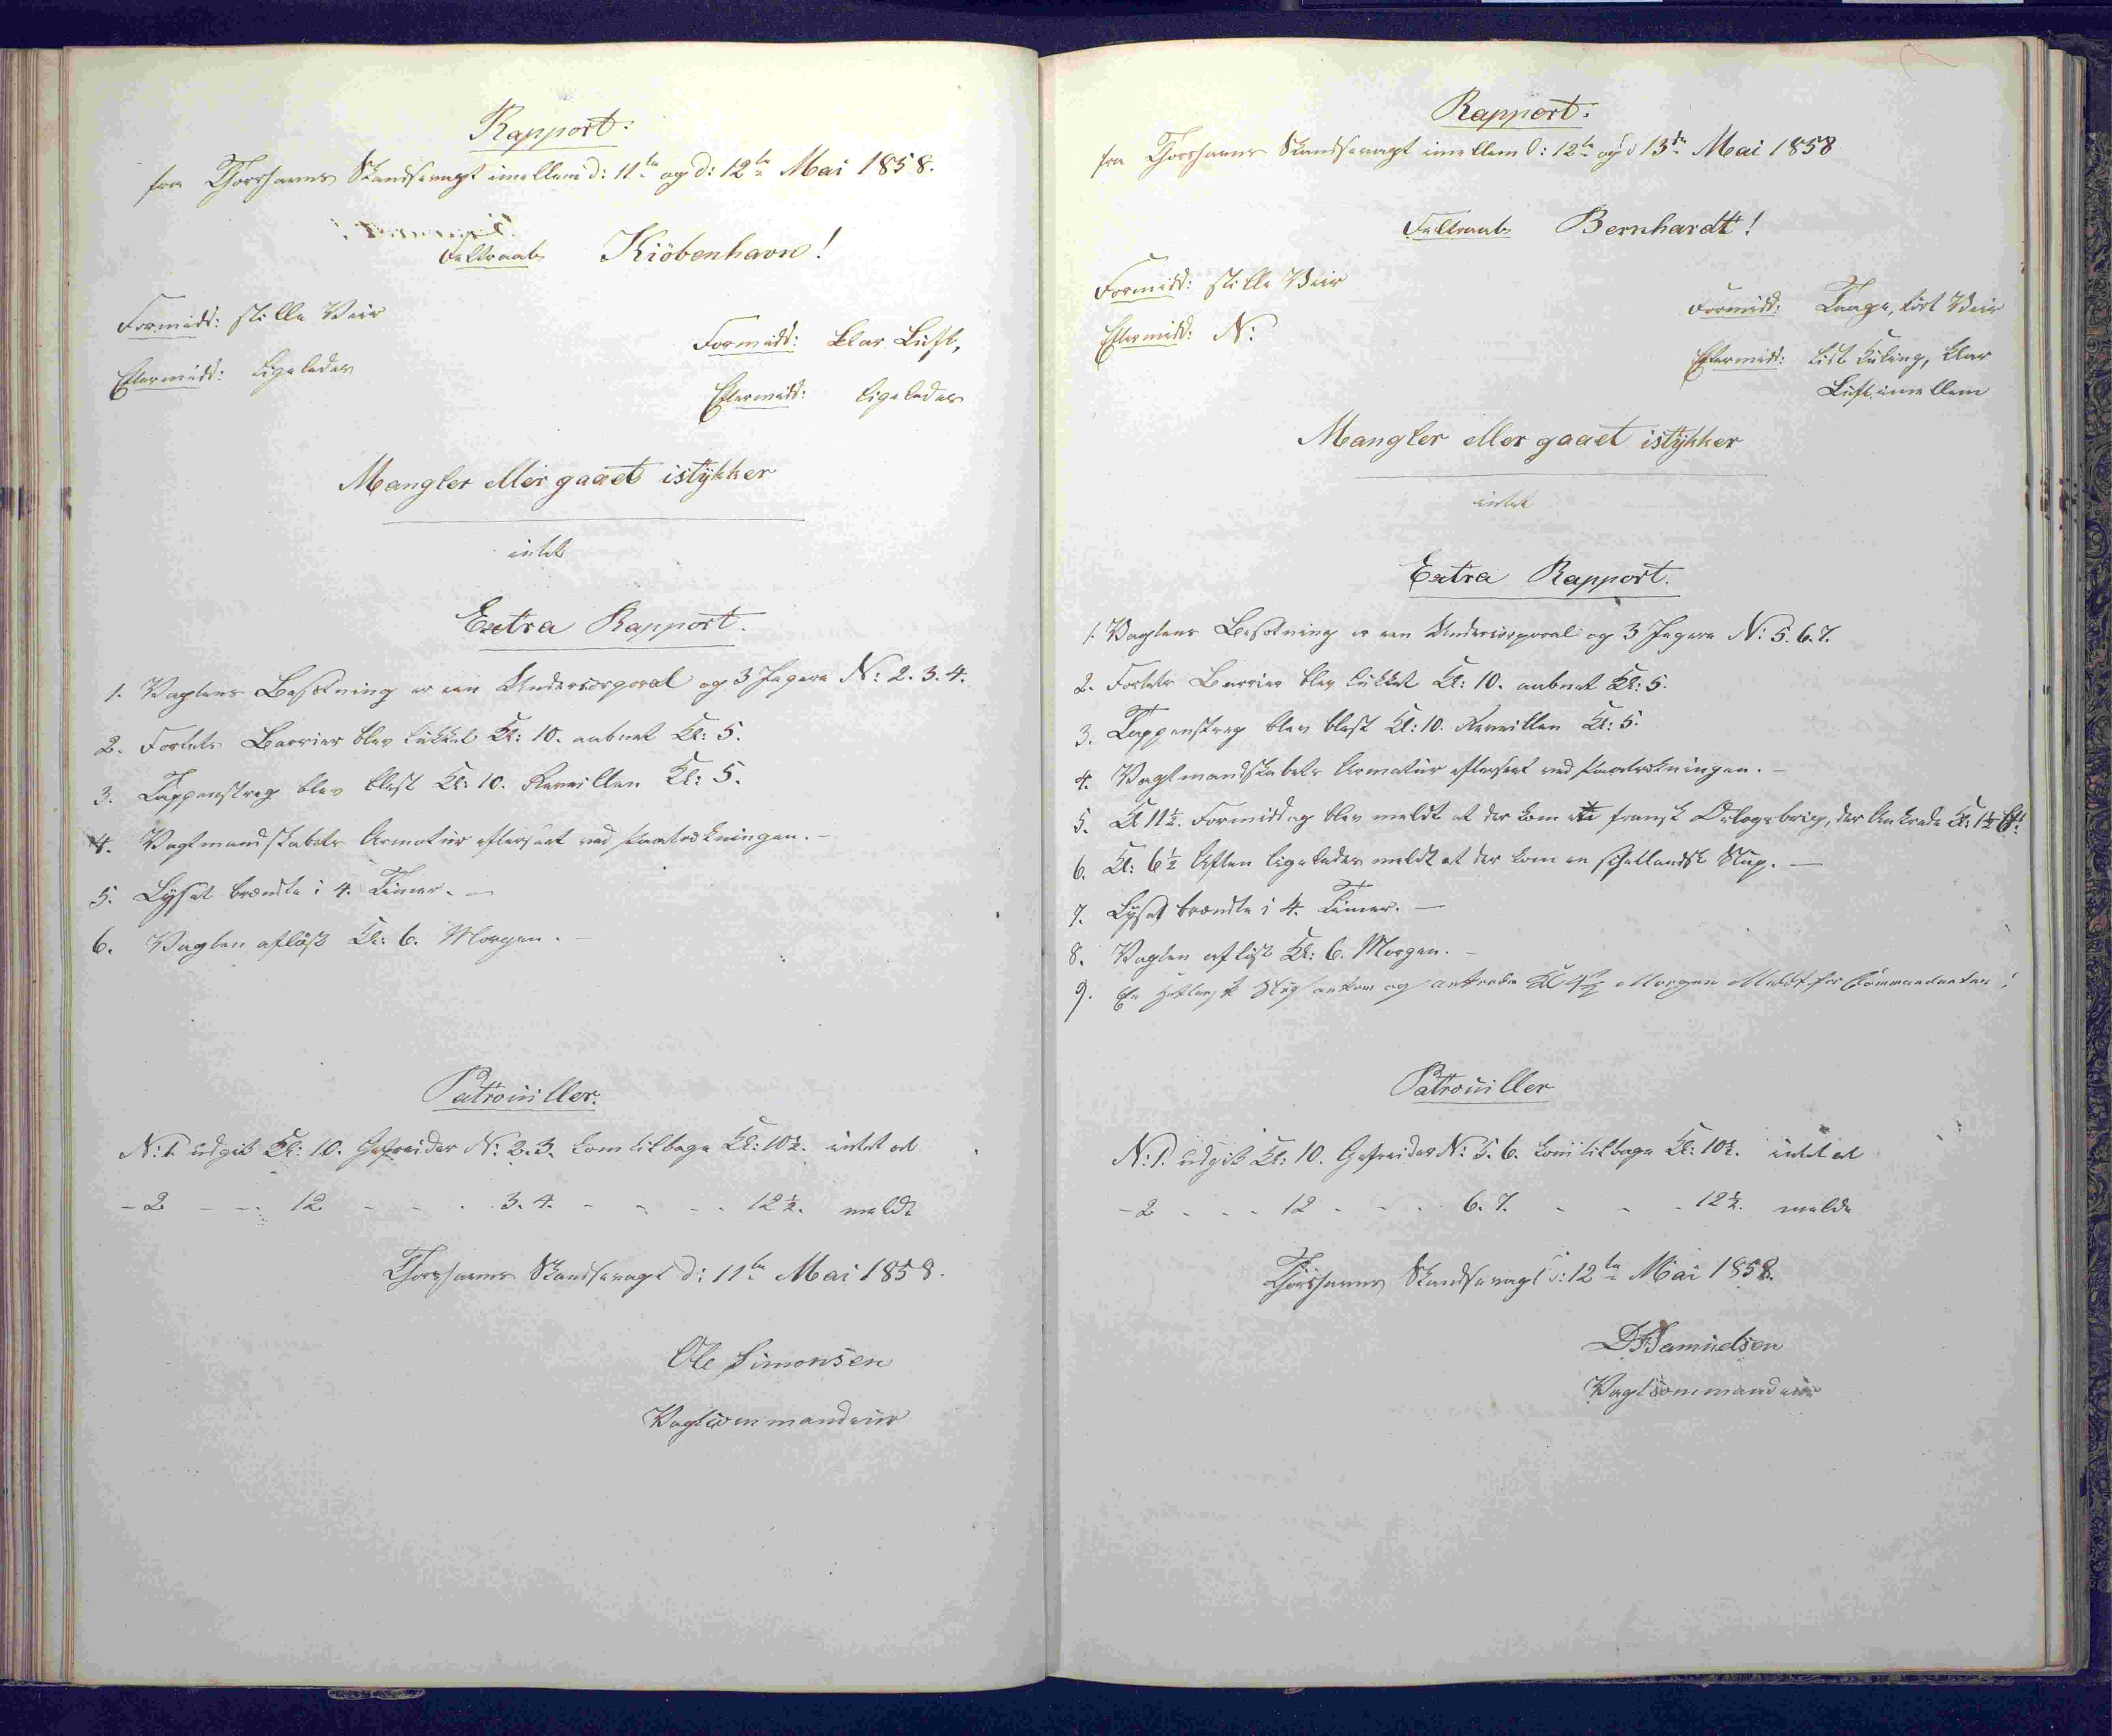 Rapport.
fra Thorshavns Skandsevagt imellem d: 11te og d: 12te Mai 1858.
Feltraab Kiöbenhavn!
Formidd: stille Veir
Eftermidd: ligeledes
Formidd: klar Luft,
Eftermidd: ligeledes
Mangler eller gaaet istÿkker
intet
Extra Rapport.
1. Vagtens Besætning er een Undercorporal og 3 Jægere N: 2. 3. 4.
2. Fortets Barrier blev lukket Kl: 10. aabnet Kl: 5.
3. Tappenstreg blev blæst Kl: 10. Reveillen Kl: 5.
4. Vagtmandskabets Armatur efterseet ved Fratrædningen. –
5. Lyset brændte i 4. Timer. –
6. Vagten afløst Kl: 6. Morgen. –
Patrouiller.
N: 1. udgik Kl: 10. Gefreider N: 2. 3. kom tilbage Kl: 10½. intet at
- 2 - - 12 - - - 3. 4. - - - 12½. meldt
Thorshavns Skandsevagt d: 11te Mai 1858.
Ole Simonsen
Vagtcommandeur
Rapport.
fra Thorshavns Skandsevagt imellem d: 12te og d 13de Mai 1858
Feltraab Bernhardt!
Formidd: stille Veir
Eftermidd: N:
Formidd: Taage, tört Veir
Eftermidd: lidt Kuling, klar
Luft imellem
Mangler eller gaaet istÿkker
intet
Extra Rapport.
1. Vagtens Besætning er een Undercorporal og 3 Jægere N: 5. 6. 7.
2. Fortets Barrier blev lukket Kl: 10. aabnet Kl: 5.
3. Tappenstreg blev blæst Kl: 10. Reveillen Kl: 5.
4. Vagtmandskabets Armatur efterseet ved Fratrædningen. –
5. Kl 11½. Formiddag blev meldt at der kom fransk Orlogsbrig, der Ankrede Kl: 1½ Ef:
6. Kl: 6½ Aften ligeledes meldt at der kom en schetlandsk Slup. –
7. Lyset brændte i 4. Timer. –
8. Vagten afløst Kl: 6. Morgen. –
9. En Slup ankom og ankrede Kl 4½ Morgen Meldt for Commandanten!
Patrouiller
N: 1. udgik Kl: 10. Gefreider N: 5. 6. kom tilbage Kl: 10½. intet at
- 2 - - - 12 - - - 6. 7. - - - 12½. melde
Thorshavns Skandsevagt d: 12te Mai 1858.
Samuelsen
Vagtcommandeur